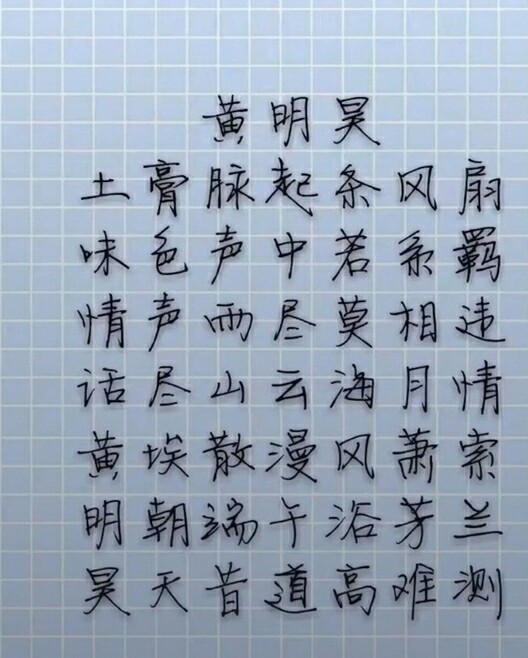 黄明昊
土膏脉起条风扇
味色声中若系羁
情声两尽莫相违
话尽山云海月情
黄埃散漫风萧索
明朝端午浴芳兰
昊天昔道高难测